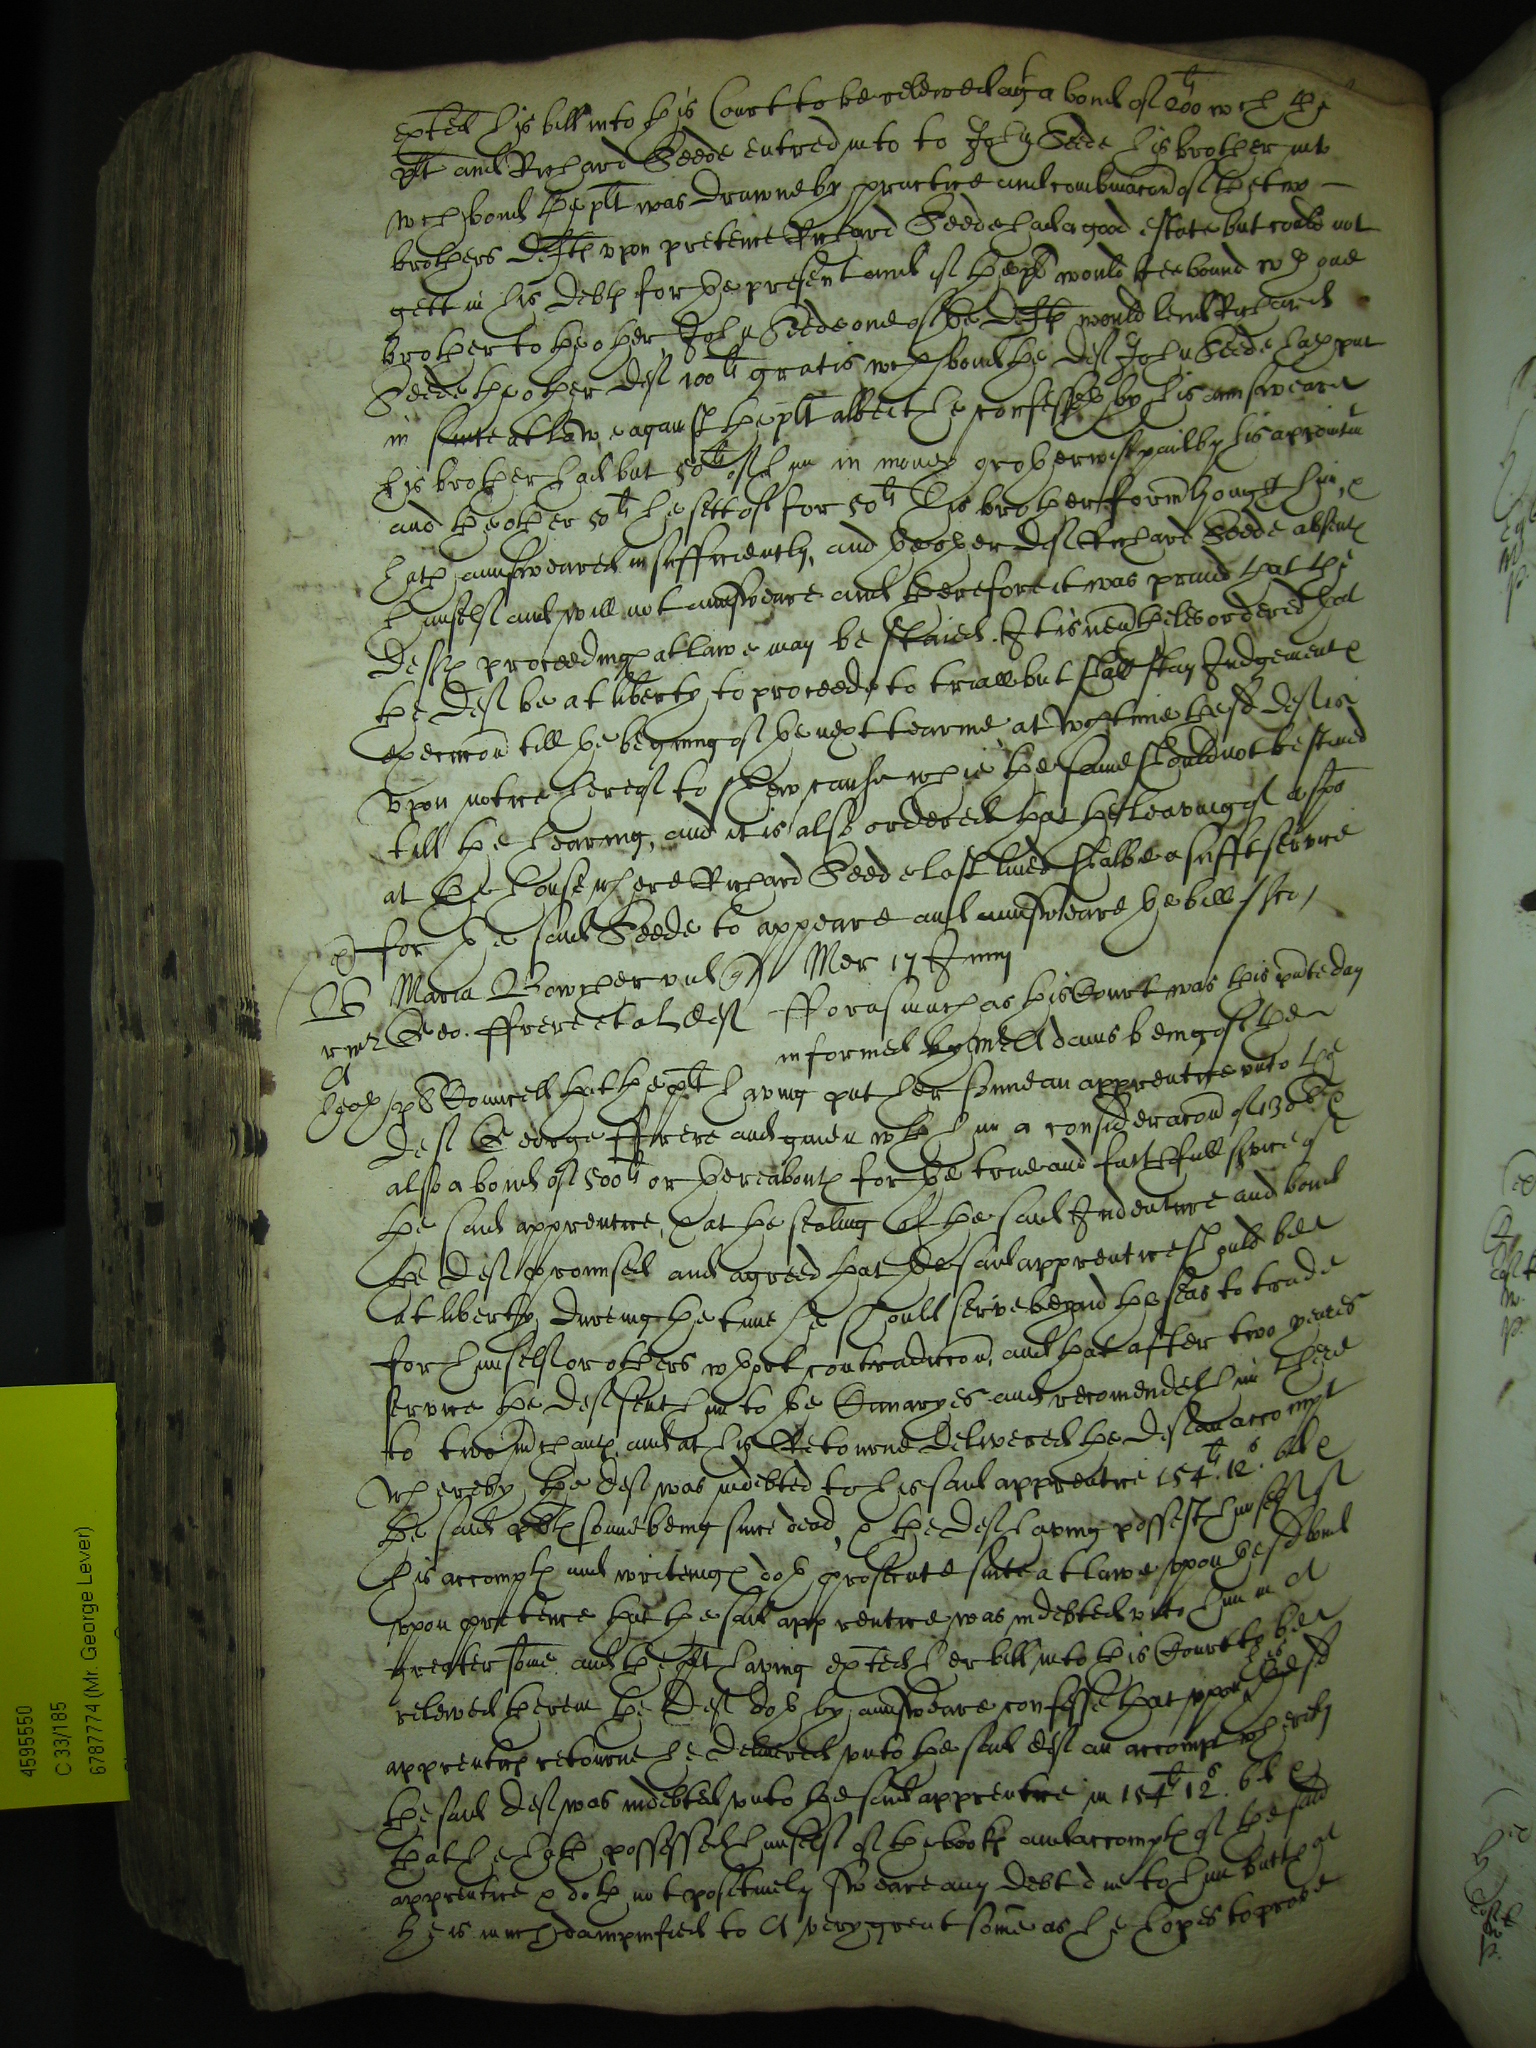 exħted his bill into this Court to be releived agt a bond of 200li wch the
plt and Richard Seede entred into to John Seede his brother into
wch bond the plt was drawne by practice and combinacon of the two
brothers defts upon pretence Richard Seede had a good estate but could not
gett in his debts for the present and if the plt would bee bound wth one
brother to the other, John Seede one of the defts would lend Richard
Seede the other deft 100li gratis wch bond the deft John Seede hath put
in suite at lawe against the plt albeit he confesseth by his answeare
his brother had but 50li of him in money or otherwise paid by his apointmt
and the other 50li he sett of for 50li his brother
hath answeared insufficiently, and the other deft Richard Seede absents
himself and will not answeare and therefore it was praied that the
defts proceedings at lawe may be staied. It is nevertheles ordered that
the deft be at liberty to proceede to triall but shall stay Judgement &
execucon till the begining of the next tearme, at wch time the sd deft is
upon notice hereof to shew cause why the same should not be staied
till the hearing, and it is also ordered that the leaving of a spa
at the house where Richard Seede last lived shalbe a sufft service
for the said Seede to appeare and answeare the bill
Maria Bowcher vid qr Mer 17 Junij
Geo. Ffrere et al deft Fforasmuch as this Court was this pnte day
informed by Mr Adams being of the
plts Councell that the plt having put her sonne an apprentice unto the
deft George Ffrere and given wth him a consideracon of 130li &
also a bond of 500li or thereabouts for the true and faithfull service of
the said apprentice, & at the sealing of the said Indenture and bond
the deft promised and agreed that the said apprentice should bee
at liberty dureing the time he should serve beyond the seas to trade
for himself or others wthout contradiccon, and that after two yeares
service the deft sent him to the Canaryes and recomended him there
to two mchants, and at his Retourne delivered the deft an accompt
whereby the deft was indebted to his said apprentice 154li. 12s. 6d &
the said plts sonne being since dead, & the deft having possest himself of
his accompts and writeings doth prosecute suite at lawe upon the sd bond
upon pretence that the said apprentice was indebted unto him in a
greater some, and the plt having exħted her bill into this Court to bee
releived therein the deft doth by answeare confesse that upon his the sd
apprentices retourne he delivered unto the said deft an accompt whereby
the said deft was indebted unto the said apprentice in 154li 12s. 6d &
that he hath possessed himself of the books and accompts of the said
apprentice & doth not positively sweare any debt due to him but that
he is much dampnified to A very great some as he hopes to prove
4595550
C 33/185
6787774 (Mr. George Lever)